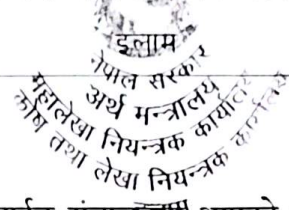 इलाम
नेपाल सरकार
अर्थ मन्त्रालय
महालेखा नियन्त्रक कार्यालय
कोष तथा लेखा नियन्त्रक कार्यालय
इलाम